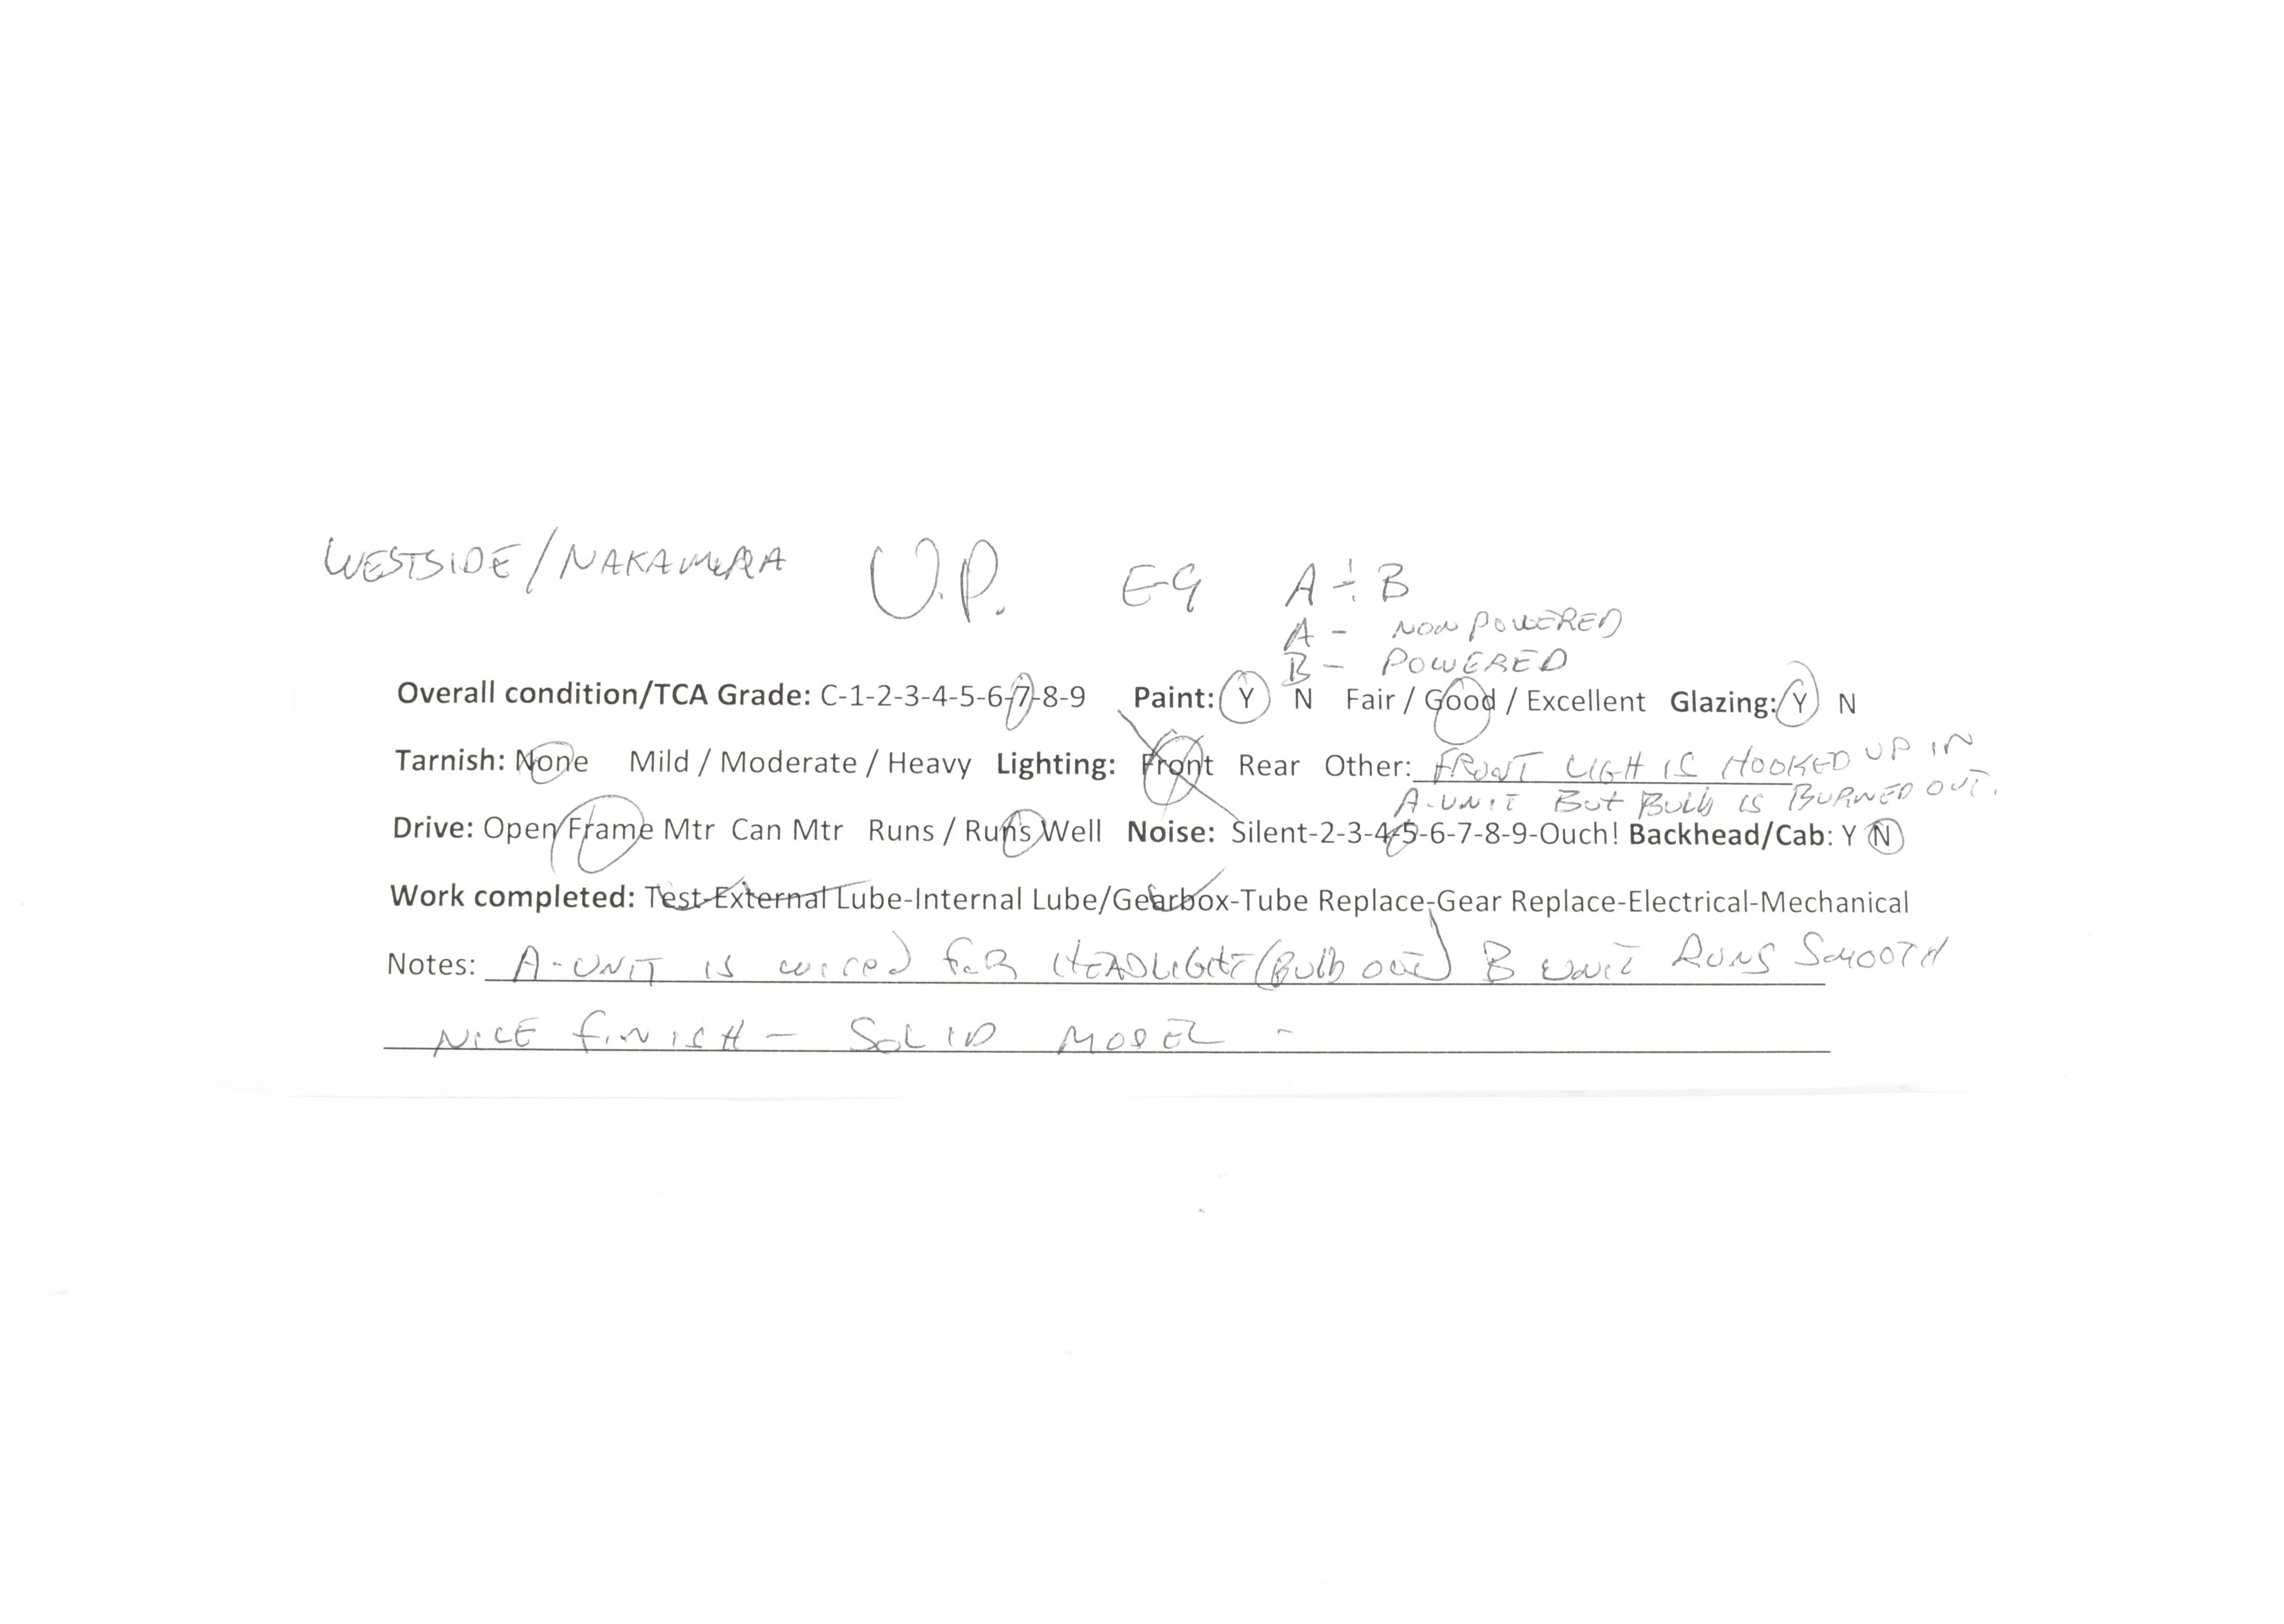 WESTSIDE/NAKAMURA U.P. E-9 A ÷ B
A - NON POWERED
B - POWERED
Overall condition/TCA Grade: C-1-2-3-4-5-6-7-8-9 Paint: Y N Fair / Good / Excellent Glazing: Y N
Tarnish: None Mild / Moderate / Heavy Lighting: Front Rear Other: FRONT LIGH IS HOOKED UP IN
A-UNIT BUT BULB IS BURNED OUT.
Drive: Open Frame Mtr Can Mtr Runs / Runs Well Noise: Silent-2-3-4-5-6-7-8-9-Ouch! Backhead/Cab: Y N
Work completed: Test-External Lube-Internal Lube/Gearbox-Tube Replace-Gear Replace-Electrical-Mechanical
Notes: A-UNIT IS wired foR HEADLIGHT (Bulb out) B UNIT RUNS SMOOTH
NICE FINISH - SOLID MODEL -